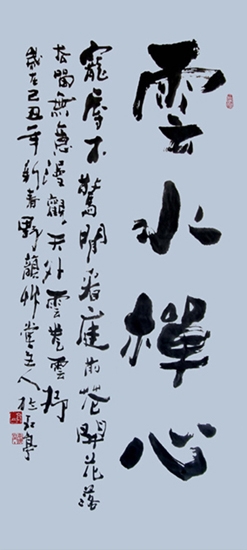 雲水禪心
寵辱不驚閒看庭前花開花落
去留無意漫觀天外雲卷雲舒
歲在己丑年新春野籟艸堂主人於亭